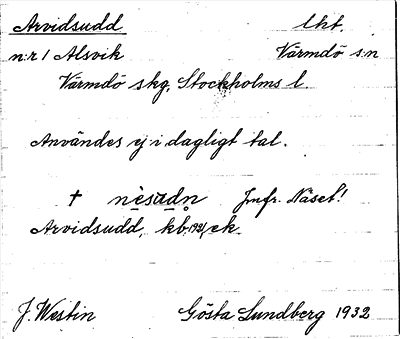 Arvidsudd lht.
n:r 1 Alsvik Värmdö sn
Värmdö skg, Stockholms l.
Användes ej i dagligt tal.
† nèsadn Jmfr. Näset!
Arvidsudd, kb. 1921, ek.
J. Westin Gösta Lundberg 1932